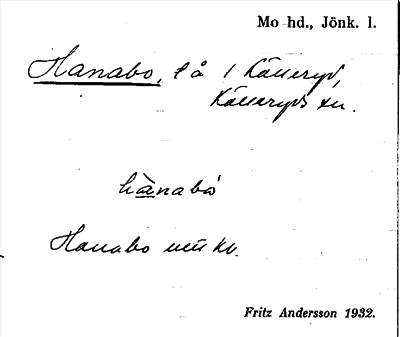 Mo hd., Jönk. l.
Hanabo, l å / Källeryd,
Källeryds sn.
hànabò
Hanabo
Fritz Andersson 1932.